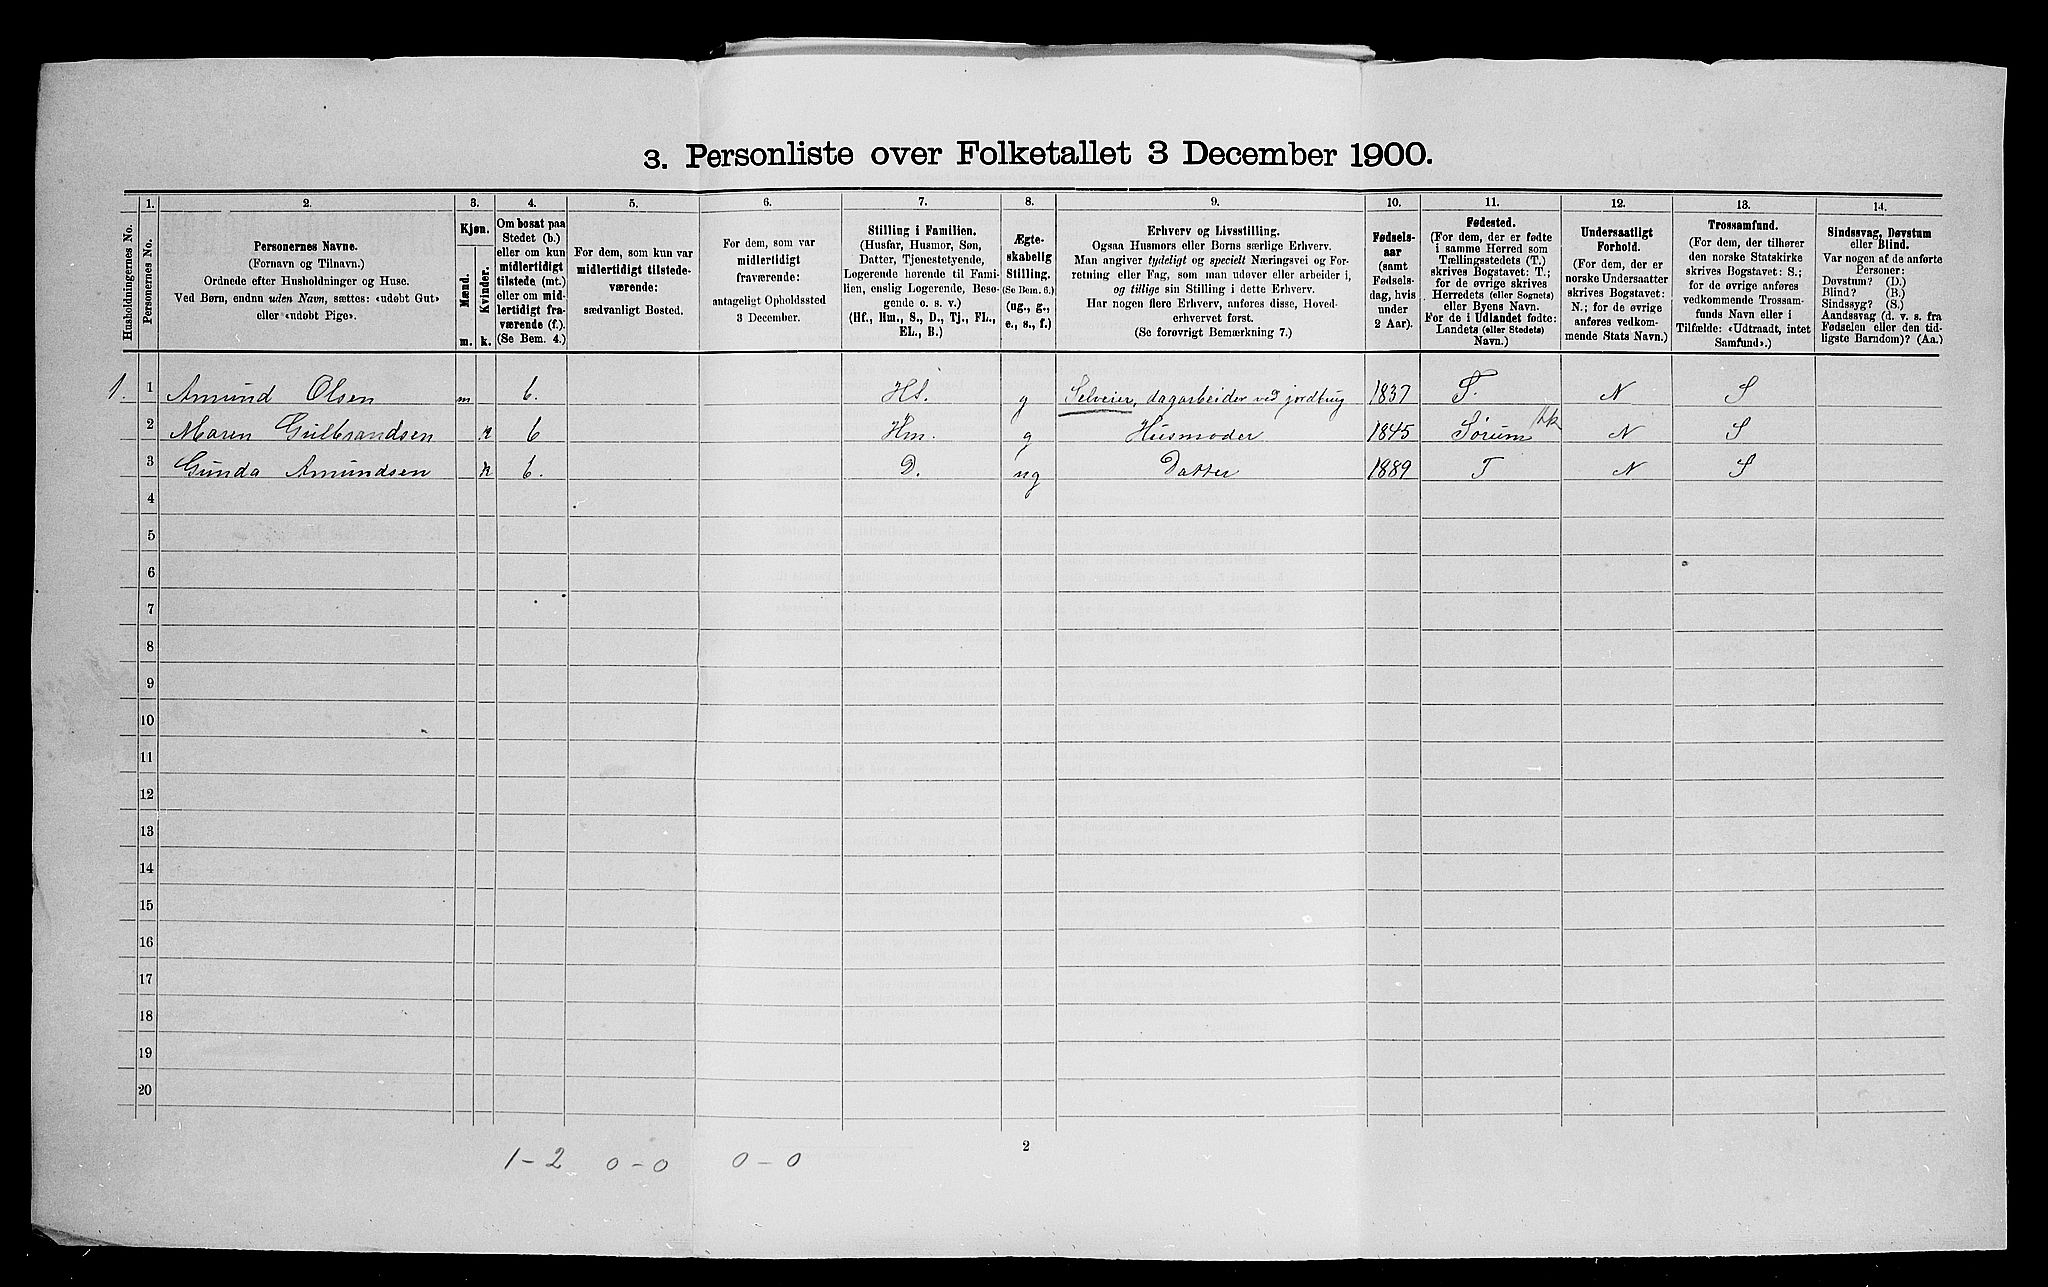 3. Personliste over Folketallet 3 December 1900.
Husholdningernes No.
1.
Personernes No.
2.
Personernes Navne.
(Fornavn og Tilnavn.)
Ordnede efter Husholdninger og Huse.
Ved Børn, endnu uden Navn, sættes: «udøbt Gut»
eller «udøbt Pige».
3.
Kjøn.
Mænd.
Kvinder.
m.
k.
4.
Om bosat paa
Stedet (b.)
eller om kun
midlertidigt
tilstede (mt.)
eller om mid-
lertidigt fra-
værende (f.).
(Se Bem. 4.)
5.
For dem, som kun var
midlertidigt tilstede-
værende:
sædvanligt Bosted.
6.
For dem, som var
midlertidigt
fraværende:
antageligt Opholdssted
3 December.
7.
Stilling i Familien.
(Husfar, Husmor, Søn,
Datter, Tjenestetyende,
Logerende hørende til Fami-
lien, enslig Logerende, Besø-
gende o. s. v.)
(Hf., Hm., S., D., Tj., FL.,
EL., B.)
8.
Ægte-
skabelig
Stilling.
(Se Bem. 6.)
(ug., g.,
e., s., f.)
9.
Erhverv og Livsstilling.
Ogsaa Husmors eller Børns særlige Erhverv.
Man angiver tydeligt og specielt Næringsvei og For-
retning eller Fag, som man udøver eller arbeider i,
og tillige sin Stilling i dette Erhverv.
Har nogen flere Erhverv, anføres disse, Hoved-
erhvervet først.
(Se forøvrigt Bemærkning 7.)
10.
Fødsels-
aar
(samt
Fødsels-
dag, hvis
under
2 Aar).
11.
Fødested.
(For dem, der er fødte
i samme Herred som
Tællingsstedets (T.)
skrives Bogstavet: T.;
for de øvrige skrives
Herredets (eller Sognets)
eller Byens Navn.
For de i Udlandet fødte:
Landets (eller Stedets)
Navn.)
12.
Undersaatligt
Forhold.
(For dem, der er
norske Undersaatter
skrives Bogstavet:
N.; for de øvrige
anføres vedkom-
mende Stats Navn.)
13.
Trossamfund.
(For dem, der tilhører
den norske Statskirke
skrives Bogstavet: S.;
for de øvrige anføres
vedkommende Trossam-
funds Navn eller i
Tilfælde: «Udtraadt, intet
Samfund».)
14.
Sindssvag, Døvstum
eller Blind.
Var nogen af de anførte
Personer:
Døvstum? (D.)
Blind? (B.)
Sindssyg? (S.)
Aandssvag (d. v. s. fra
Fødselen eller den tid-
ligste Barndom)? (Aa.)
1. 1 Amund Olsen m b. Hf. g Selveier, dagarbeider ved jordbrug 1837 T. N S
2 Maren Gulbrandsen k b Hm. g Husmoder 1845 Sørum N S
3 Gunda Amundsen k b. D. ug Datter 1889 T N S
4
5
6
7
8
9
10
11
12
13
14
15
16
17
18
19
20
2
1-2 0-0 0-0